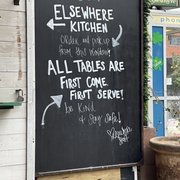 ELSEWHERE
KITCHEN
Order and pick up
from this window!
ALL TABLES ARE
FIRST COME
FIRST SERVE!
be kind
& stay safe!